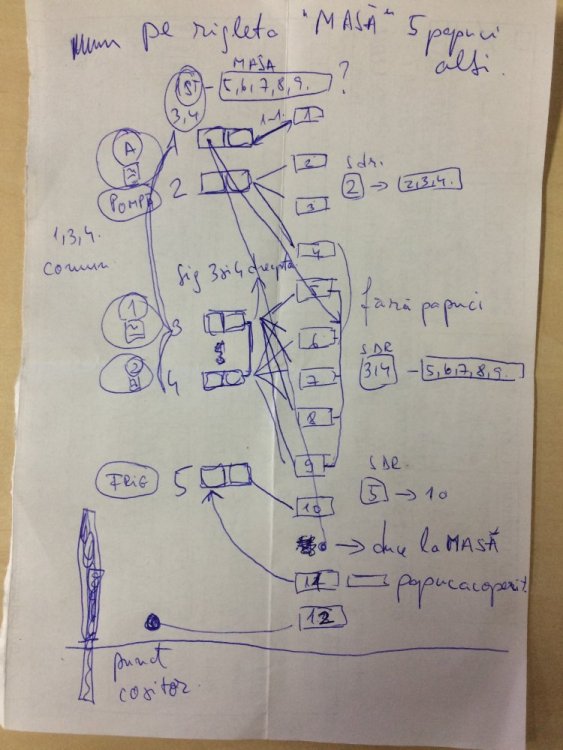 pe rigleta "MASĂ" 5 papuci
alți.
MASA
1ST - 5,6,7,8,9. ?
3,4
A
POMPA
1
1-1.
1
2
2
3
sdr.
2 → 2,3,4.
1,3,4.
comun
4
sig 3 și 4 dreapta
5
fără papuci
1
3
6
SDR
3,4 - 5,6,7,8,9.
2
4
7
8
9
FRIG
5
10
SDR.
5 → 10
→ duce la MASĂ
11
papuc acoperit.
12
punct
cositor.